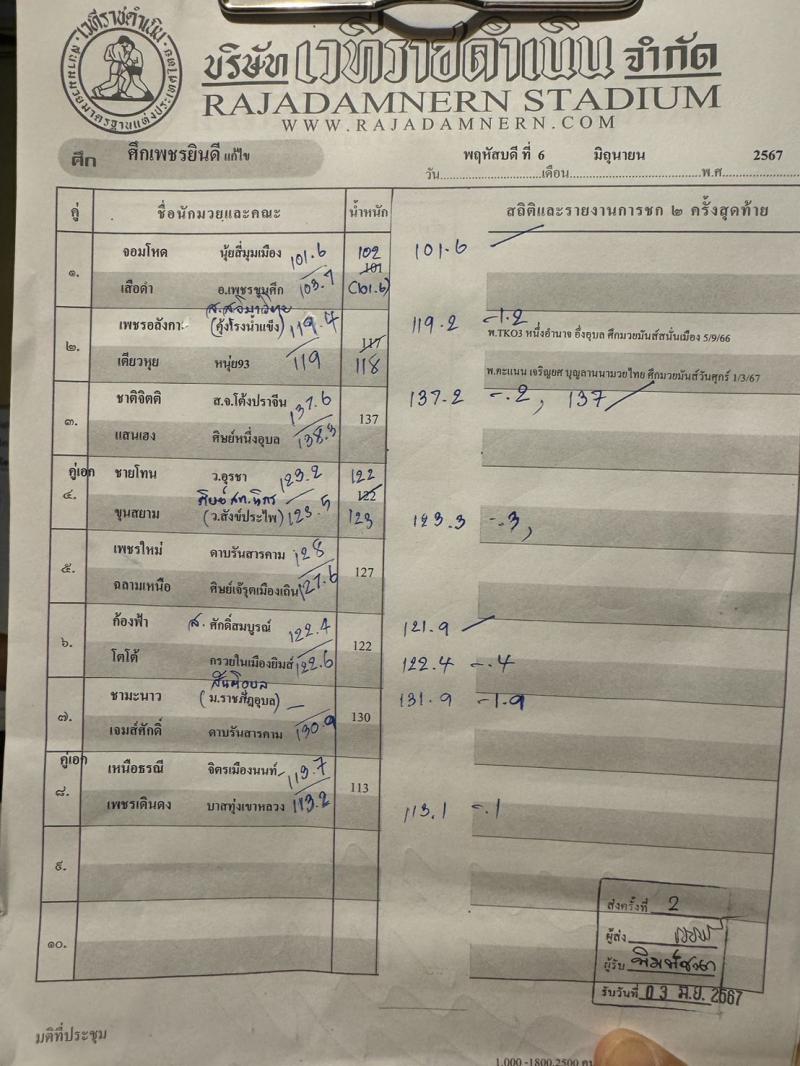 เวทีราชดำเนิน
สนามมวยมาตรฐานแห่งประเทศไทย
บริษัท เวทีราชดำเนิน จำกัด
RAJADAMNERN STADIUM
WWW.RAJADAMNERN.COM
ศึก ศึกเพชรยินดี แก้ไข
พฤหัสบดี ที่ 6 มิถุนายน 2567
วัน เดือน พ.ศ.
คู่ ชื่อนักมวยและคณะ น้ำหนัก สถิติและรายงานการชก ๒ ครั้งสุดท้าย
๑. จอมโหด นุ้ยสี่มุมเมือง 101.6 102 101.6
101
เสือดำ อ.เพชรชุมศึก 103.7 (101.6)
ส.สจ.วิทยา
๒. เพชรอลังการ (คุ้งโรงน้ำแข็ง) 119.4 117 119.2 -1.2
พ.TKO3 หนึ่งอำนาจ อึ่งอุบล ศึกมวยมันส์สนั่นเมือง 5/9/66
เตียวหุย หนุ่ย93 119 118
พ.คะแนน เจริญยศ บุญลานนามวยไทย ศึกมวยมันส์วันศุกร์ 1/3/67
๓. ชาติจิตติ ส.จ.โต้งปราจีน 137.6 137 137.2 -.2, 137
แสนเฮง ศิษย์หนึ่งอุบล 138.3
คู่เอก
๔. ชายโทน ว.อุรชา 123.2 122
122
ขุนสยาม (ว.สังข์ประไพ) 123.5 123 123.3 -.3,
๕. เพชรใหม่ ดาบรันสารคาม 128 127
ฉลามเหนือ ศิษย์เจ๊รุตเมืองเถิน 127.6
๖. ก้องฟ้า ส. ศักดิ์สมบูรณ์ 122.4 122 121.9
โตโต้ กรวยในเมืองยิมส์ 122.6 122.4 -.4
สันติอุบล
๗. ชามะนาว (ม.ราชภัฏอุบล) 130 131.9 -1.9
เจมส์ศักดิ์ ดาบรันสารคาม 130.9
คู่เอก
๘. เหนือธรณี จิตรเมืองนนท์ 113.7 113
เพชรเดินดง บาสทุ่งเขาหลวง 113.2 113.1 -.1
๙.
๑๐.
ส่งครั้งที่ 2
ผู้ส่ง
ผู้รับ
รับวันที่ 03 มิ.ย. 2567
มติที่ประชุม
1,000 -1800,2500 คน